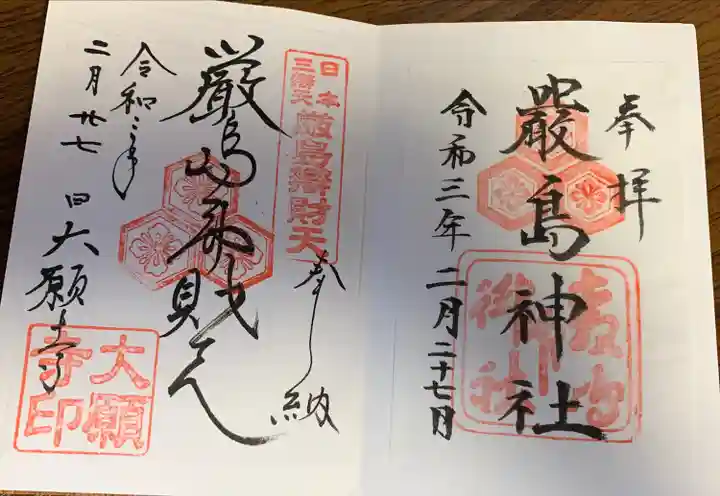 奉拝
嚴島神社
令和三年二月二十七日
奉納
日本
三辨天
厳島辨財天
厳島弁財天
令和三年
二月廿七日
大願寺
大願
寺印